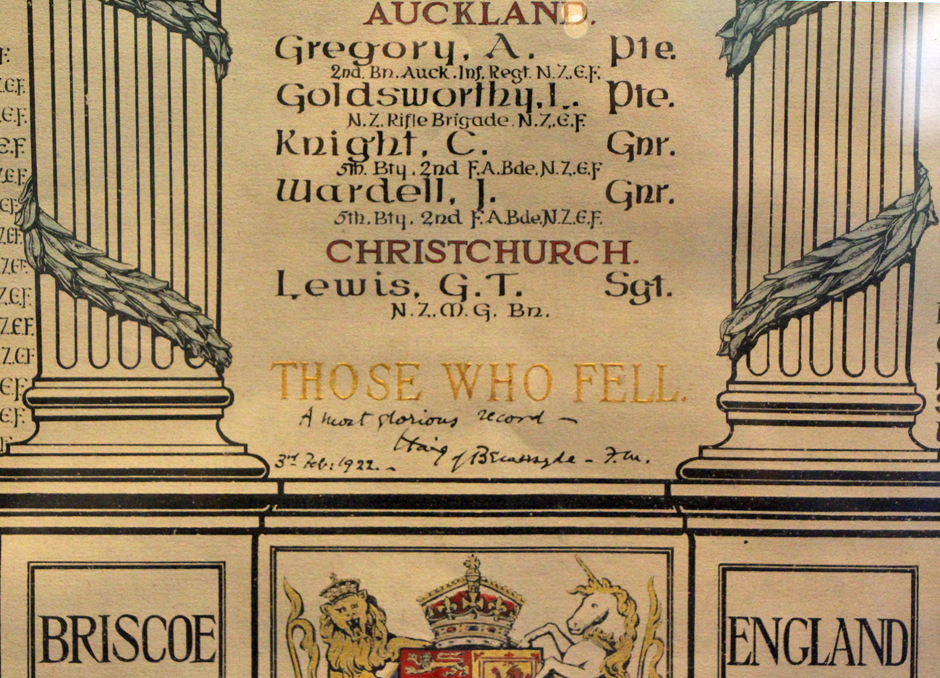 AUCKLAND.
Gregory, A. Pte.
2nd. Bn. Auck. Inf. Regt. N.Z.E.F.
Goldsworthy, L. Pte.
N.Z. Rifle Brigade. N.Z.E.F
Knight, C. Gnr.
5th. Bty. 2nd F.A.Bde. N.Z.E.F
Wardell, J. Gnr.
5th. Bty. 2nd F.A.Bde. N.Z.E.F.
CHRISTCHURCH.
Lewis, G.T. Sgt.
N.Z.M.G. Bn.
THOSE WHO FELL.
A most glorious record —
Haig of Bemersyde - F.M.
3rd Feb: 1922. -
BRISCOE
ENGLAND